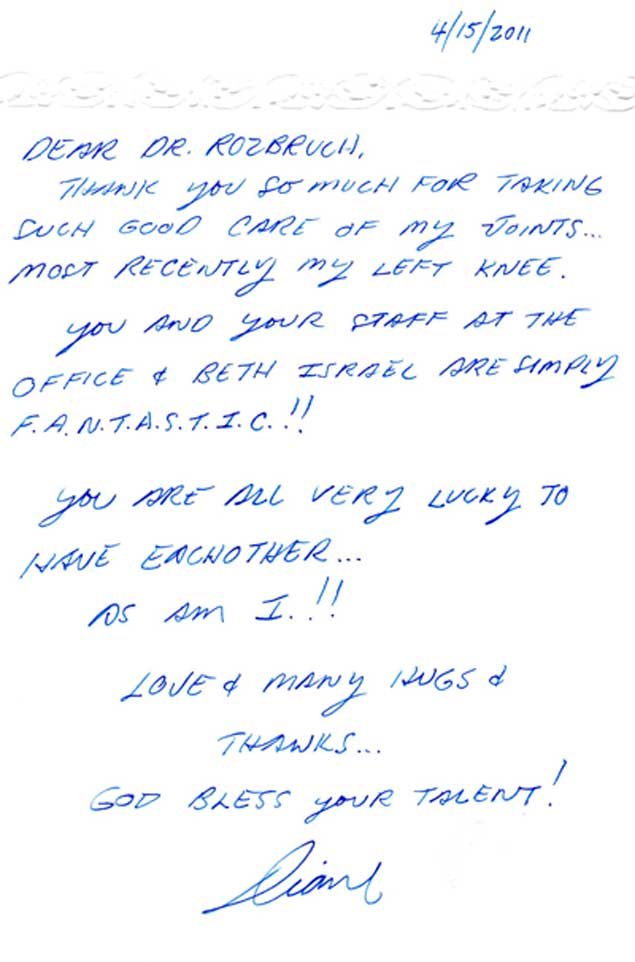 4/15/2011
DEAR DR. ROZBRUCH,
THANK YOU SO MUCH FOR TAKING
SUCH GOOD CARE OF MY JOINTS...
MOST RECENTLY MY LEFT KNEE.
YOU AND YOUR STAFF AT THE
OFFICE & BETH ISRAEL ARE SIMPLY
F.A.N.T.A.S.T.I.C.!!
YOU ARE ALL VERY LUCKY TO
HAVE EACHOTHER...
AS AM I.!!
LOVE & MANY HUGS &
THANKS...
GOD BLESS YOUR TALENT!
Diane